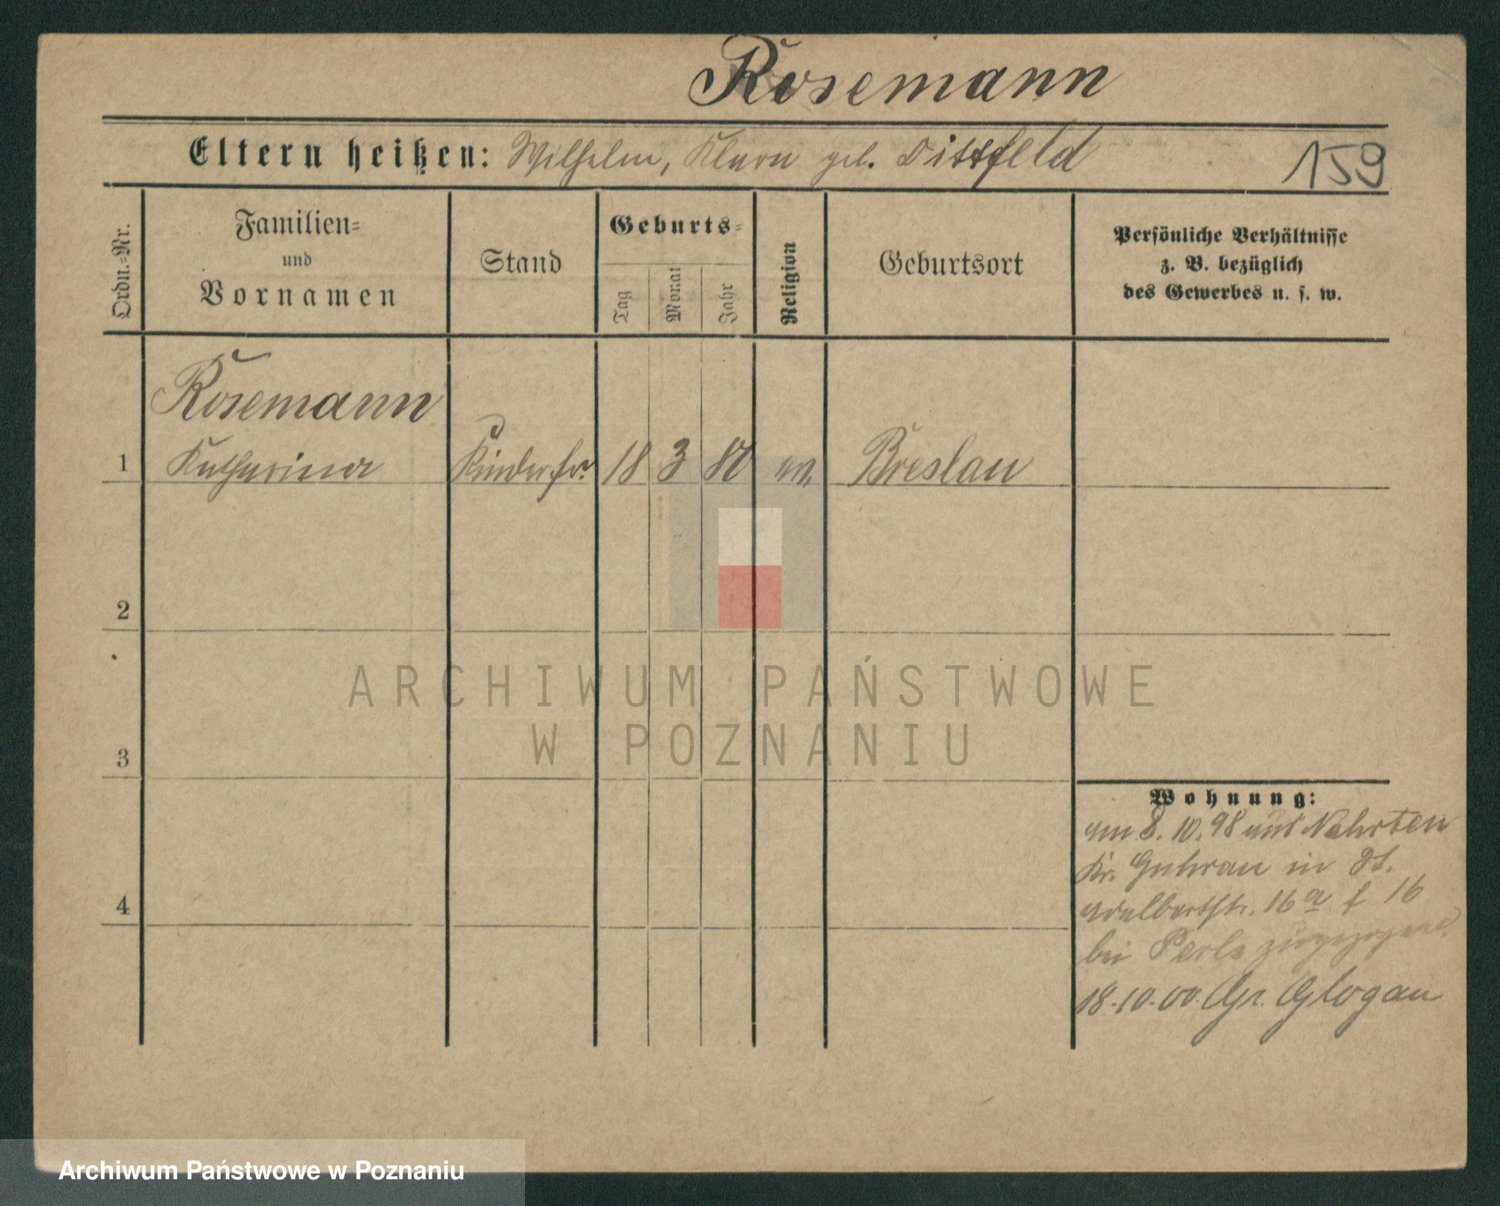 Rosemann
Eltern heißen: Wilhelm, Klara geb. Dittfeld
159
Ordn.-Nr.
Familien-
und
Vornamen
Stand
Geburts-
Tag
Monat
Jahr
Religion
Geburtsort
Persönliche Verhältnisse
z. B. bezüglich
des Gewerbes u. s. w.
Rosemann
1 Katharina Kinderfr. 18 3 80 Breslau
2
ARCHIWUM PAŃSTWOWE
W POZNANIU
3
Wohnung:
am 8. 10. 98 aus Nahrten
Kr. Guhrau in St.
Adalbertstr. 16a f 16
4
bei Perle zugezogen.
18.10.00 Gr. Glogau
Archiwum Państwowe w Poznaniu